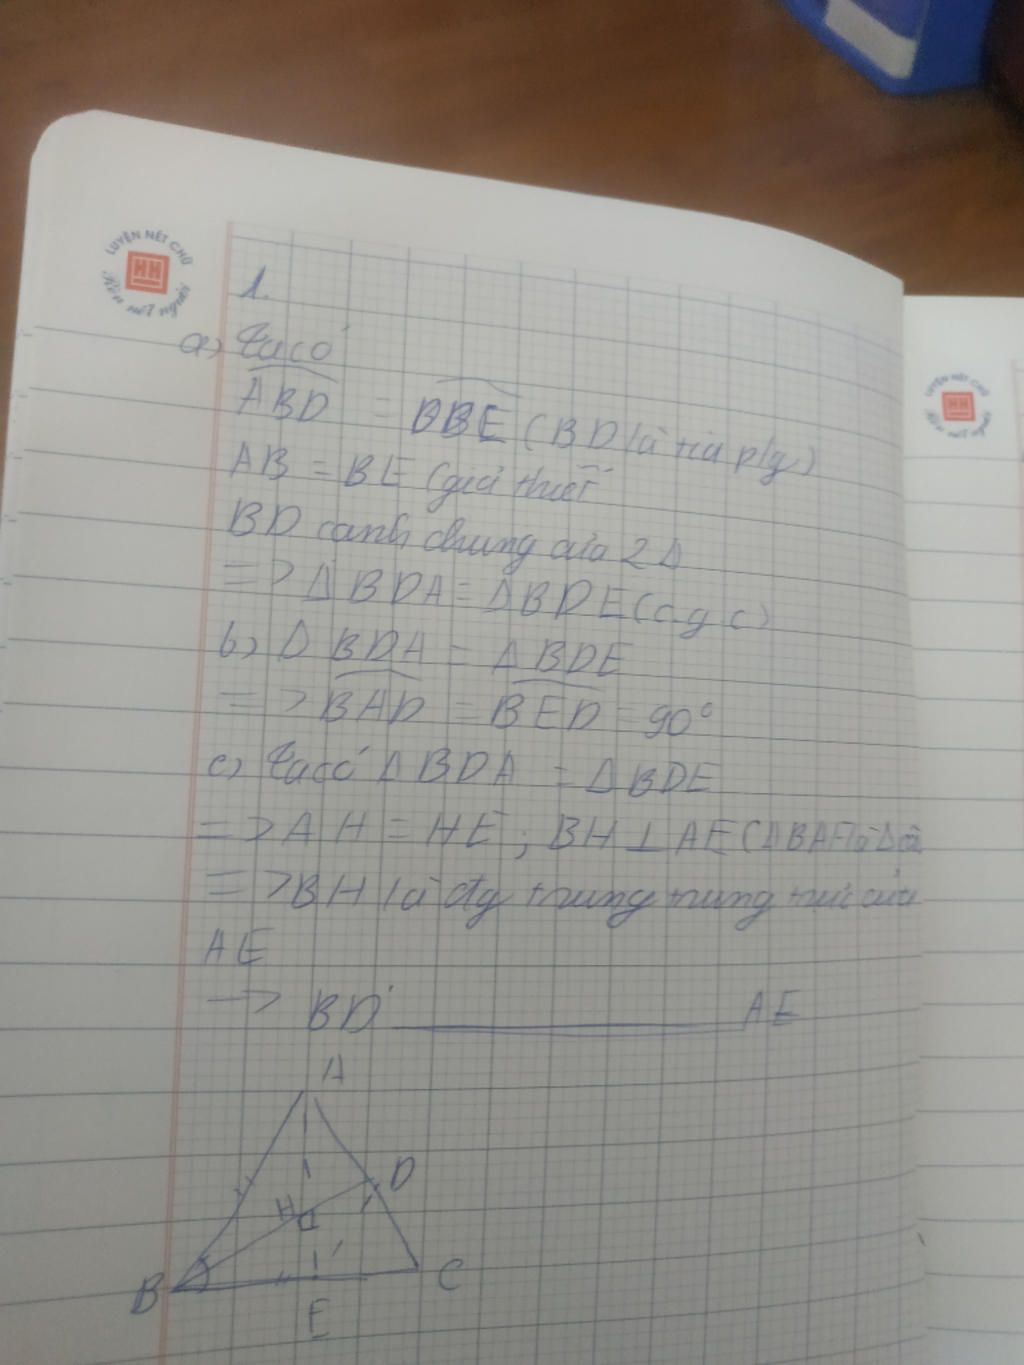 LUYỆN NÉT CHỮ
HH
Rèn nết người
1.
a) Ta có
ABD = DBE (BD là tia p/g)
AB = BE (giả thiết
BD cạnh chung của 2 Δ
=> Δ BDA = Δ BDE (c g c)
b) Δ BDA = Δ BDE
=> BAD = BED = 90°
c) Ta có Δ BDA = Δ BDE
=> AH = HE ; BH ⊥ AE (Δ BAE là Δ
=> BH là đg trung trung trực của
AE
-> BD ———— AE
A
D
H
B
C
E
LUYỆN NÉT CHỮ
HH